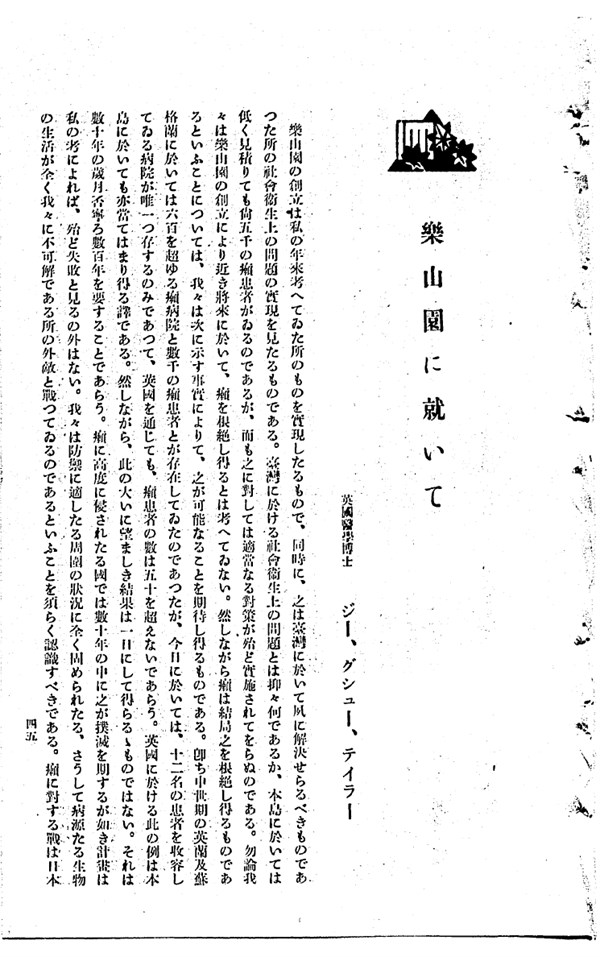 樂山園に就いて
英國醫學博士　ジー、グシュー、テイラー
樂山園の創立は私の年來考へてゐた所のものを實現したるもので、同時に、之は臺灣に於いて夙に解決せらるべきものであ
つた所の社會衞生上の問題の實現を見たるものである。臺灣に於ける社會衞生上の問題とは抑々何であるか、本島に於いては
低く見積りても尙五千の癩患者がゐるのであるが、而も之に對しては適當なる對策が殆ど實施されてをらぬのである。勿論我
々は樂山園の創立により近き將來に於いて、癩を根絕し得るとは考へてゐない。然しながら癩は結局之を根絕し得るものであ
るといふことについては、我々は次に示す事實によりて、之が可能なることを期待し得るものである。卽ち中世期の英蘭及蘇
格蘭に於いては六百を超ゆる癩病院と數千の癩患者とが存在してゐたのであつたが、今日に於いては、十二名の患者を收容し
てゐる病院が唯一つ存するのみであつて、英國を通じても、癩患者の數は五十を超えないであらう。英國に於ける此の例は本
島に於いても亦當てはまり得る譯である。然しながら、此の大いに望ましき結果は一日にして得らるゝものではない。それは
數十年の歲月否寧ろ數百年を要することであらう。癩に高度に侵されたる國では數十年の中に之が撲滅を期するが如き計畫は
私の考によれば、殆ど失敗と見るの外はない。我々は防禦に適したる周圍の狀況に全く固められたる、さうして病源たる生物
の生活が全く我々に不可解である所の外敵と戰つてゐるのであるといふことを須らく認識すべきである。癩に對する戰は日本
四五